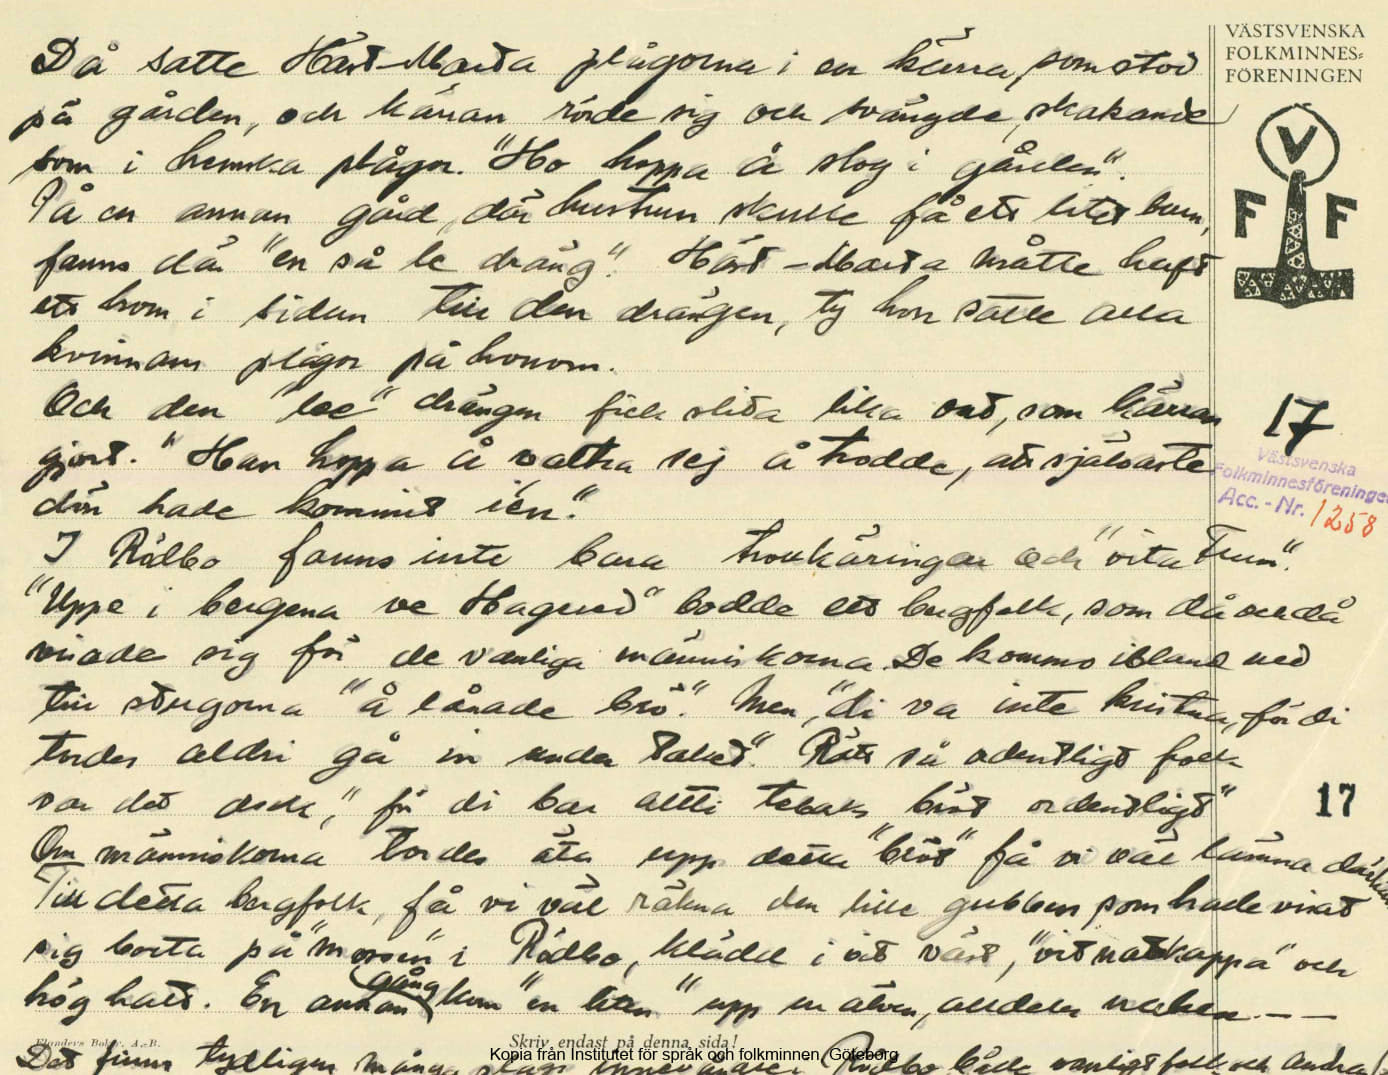 Då satte Häst-Marta plågorna i en kärra, som stod
på gården, och kärran rörde sig och svängde, skakande
som i hemska plågor. "Ho hoppa å slog i gården".
På en annan gård, där hustrun skulle få ett litet barn,
fanns där "en så le dräng". Häst-Marta måtte haft
ett horn i sidan till den drängen, ty hon satte alla
kvinnans plågor på honom.
Och den "lee" drängen fick slita lika ont, som kärran
gjort. "Han hoppa å valtra sej å trodde, att självaste
dön hade kommit i'en."
I Rödbo fanns inte bara trollkäringar och "vita Frun".
"Uppe i bergena ve Hagered" bodde ett bergfolk, som då och då
visade sig för de vanliga människorna. De kommo ibland ned
till stugorna "å lånade brö". Men, "di va inte kristna, för di
tordes aldri gå in under taket". Rätt så odentligt folk
var det dock, "för di bar allti tebaks bröt ordentligt"
Om människorna tordes äta upp detta "bröt" få vi väl lämna därhän
Till detta bergfolk, få vi väl räkna den lille gubben som hade visat
sig borta på "mossen" i Rödbo, klädd i vit väst, "vit nattkappa" och
hög hatt. En annan gång kom "en liten" upp ur älven, alldeles naken. — —
Det finns tydligen många slags invånare i Rödbo både vanligt folk och andra
VÄSTSVENSKA
FOLKMINNES=
FÖRENINGEN
V
F F
17
Västsvenska
Folkminnesföreningen
Acc. - Nr. 1258
17
Elanders Boktr. A.-B.
Skriv endast på denna sida!
Kopia från Institutet för språk och folkminnen, Göteborg